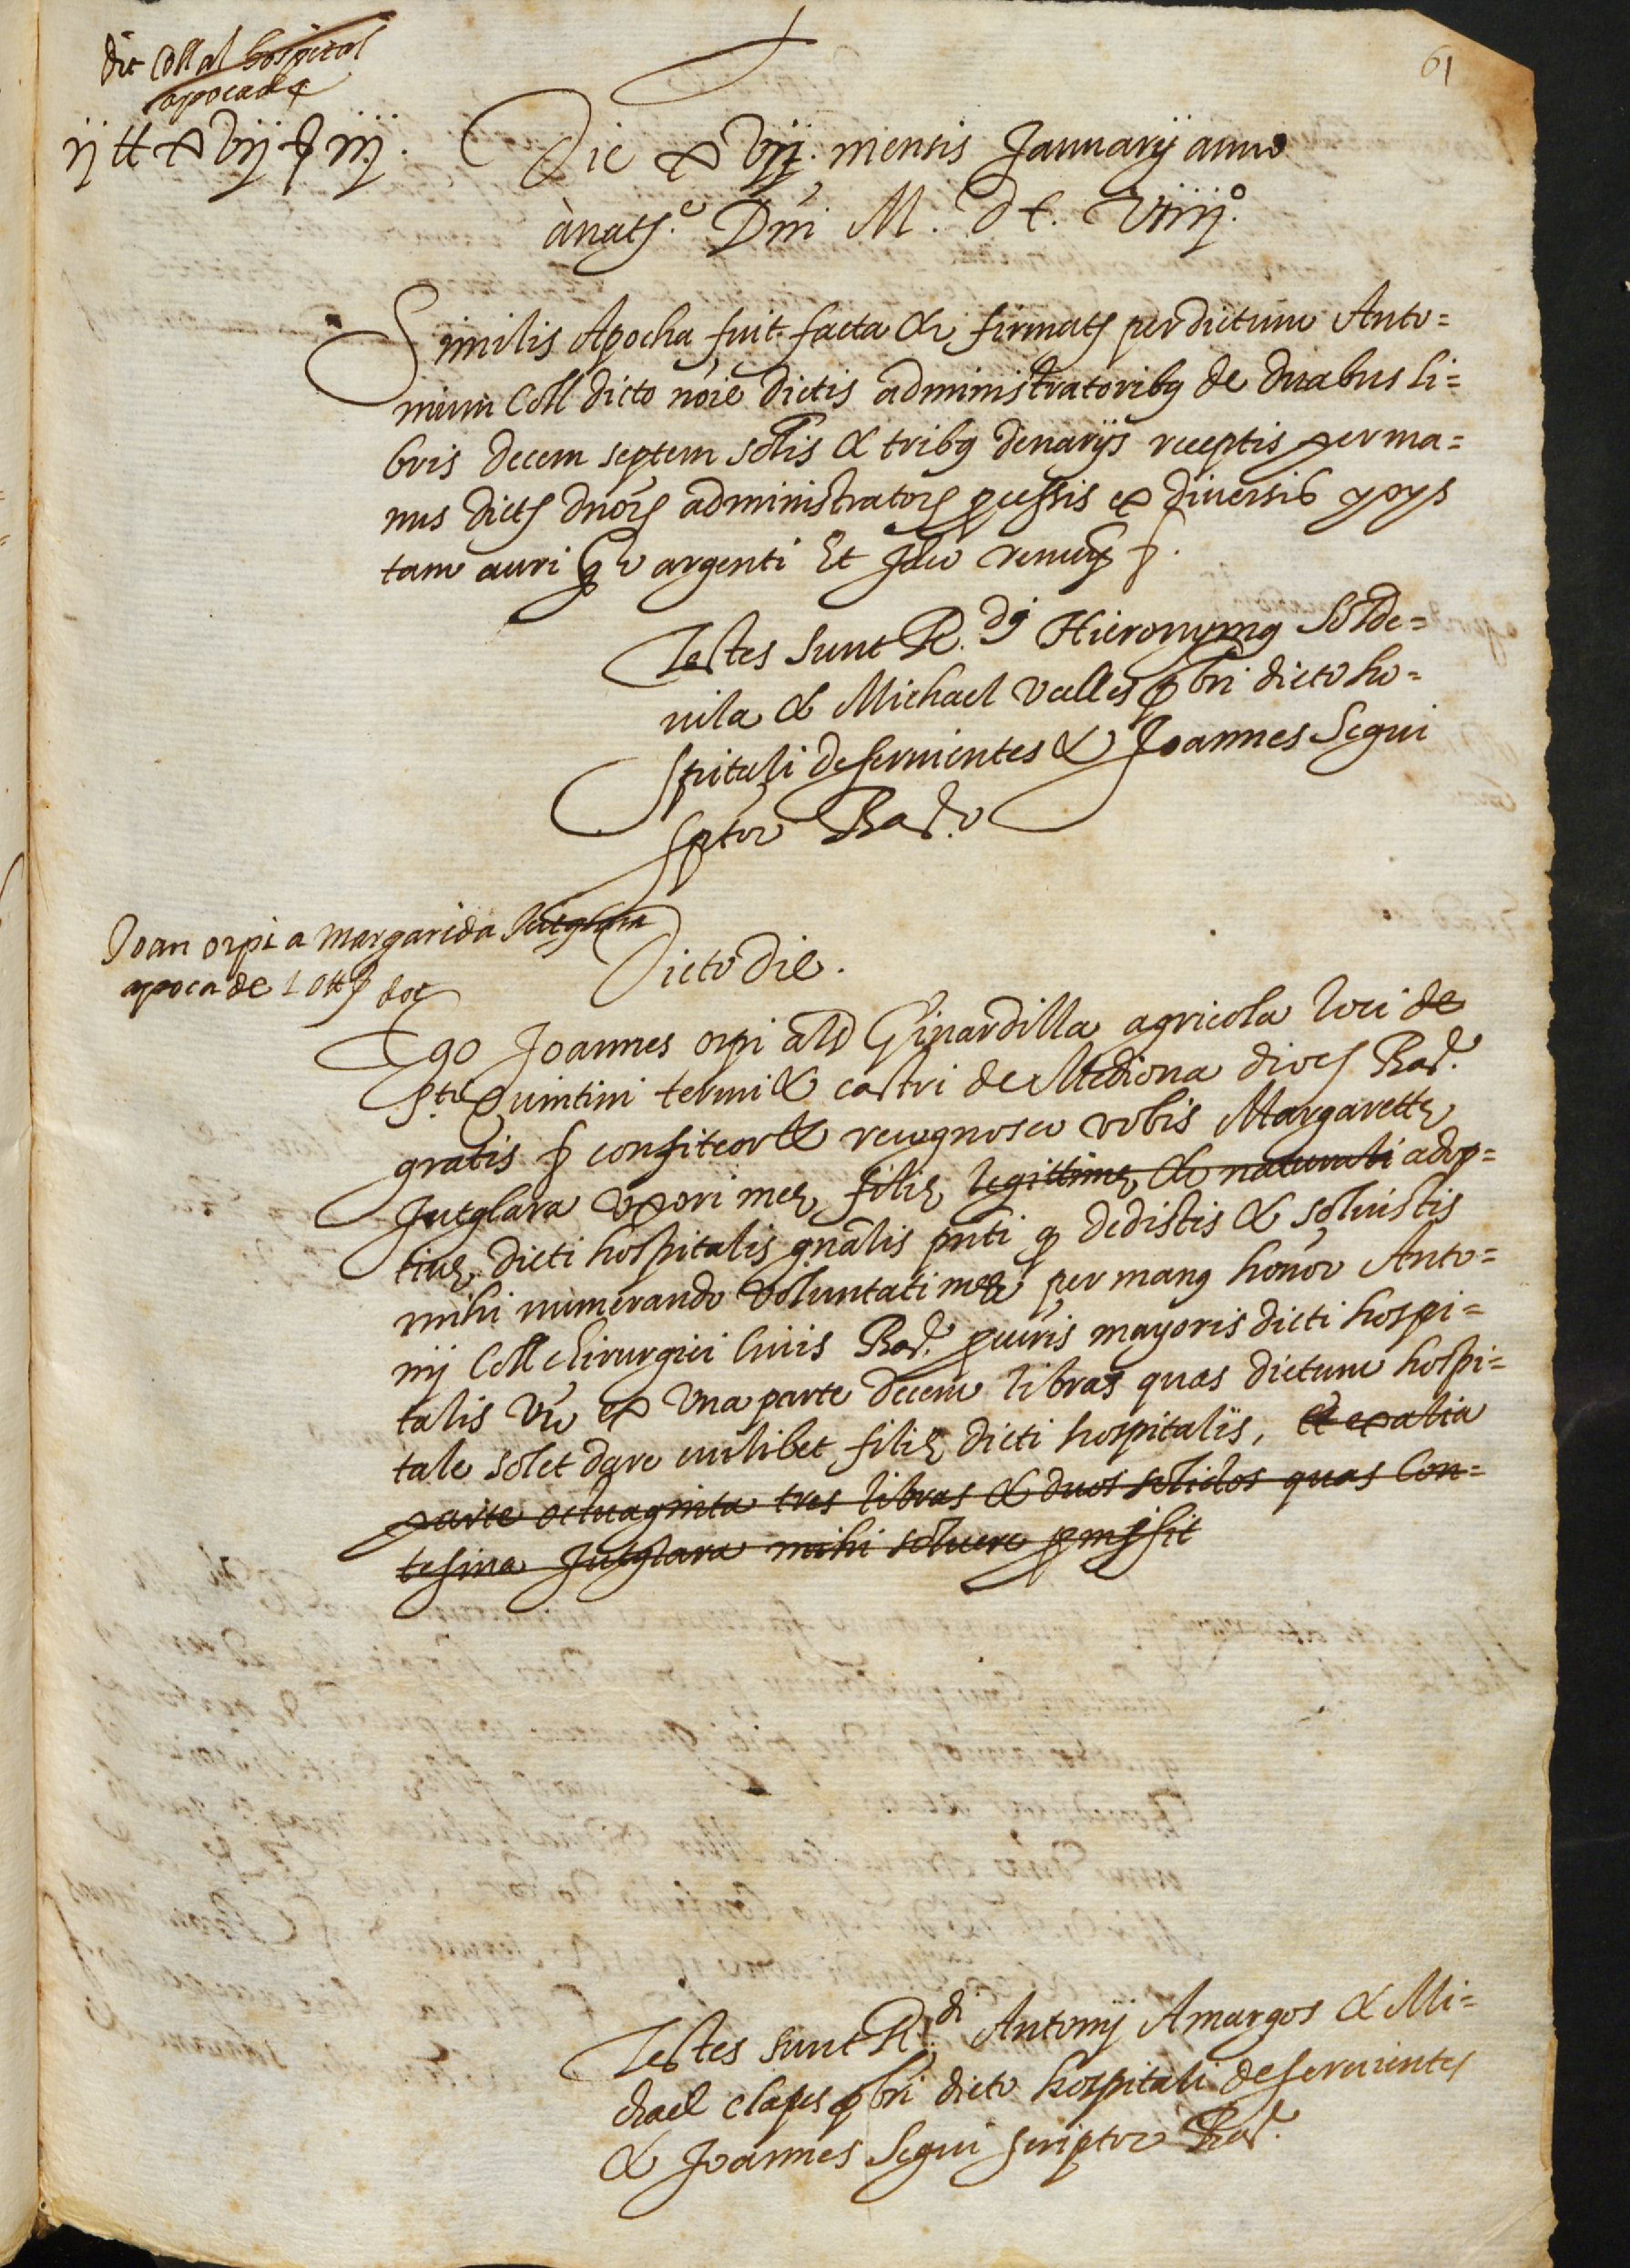 61
dit Coll al hospital
apoca de
ij ll xvij ß iij.
Die xvij. mensis Januarij anno
à nat.e Dni M. DC. viiij.o
Similis Apocha fuit facta & firmata per dictum Anto=
nium Coll dicto noie dictis administratoribus de duabus li=
bris decem septem solis & tribus denarijs receptis per ma=
nus dictorum dnorum administratorum processis ex diversis
tam auri q argenti Et Ideo renun &.
Testes sunt R.di Hieronymus Solde=
uila & Michael valles pbri dicto ho=
spitali deseruientes & Joannes Segui
sptor Bar.e
Joan orpi a margarida Jutglara
apoca de 10 ll dot
Dicto die.
Ego Joannes orpi als Ginardilla agricola loci de
Sti Quintini termi & castri de Mediona dioc Bar.e
gratis & confiteor & recognosco vobis Margarette
Jutglara vxori mee, filie legittime & naturali adop=
tiue dicti hospitalis gnalis pnti q dedistis & soluistis
mihi numerando voluntati mee per manus honor Anto=
nij Coll chirurgici ciuis Bar.e priuris mayoris dicti hospi=
talis vn ex vna parte decem libras quas dictum hospi=
tale solet dare cuilibet filie dicti hospitalis, et ex alia
parte octuaginta tres libras & duos solidos quas Con=
tesina Jutglara mihi soluere promisit
Testes sunt R.di Antonij Amargos & Mi=
chael clapes pbri dicto hospitali deseruientes
& Joannes Segui scriptor Bar.e